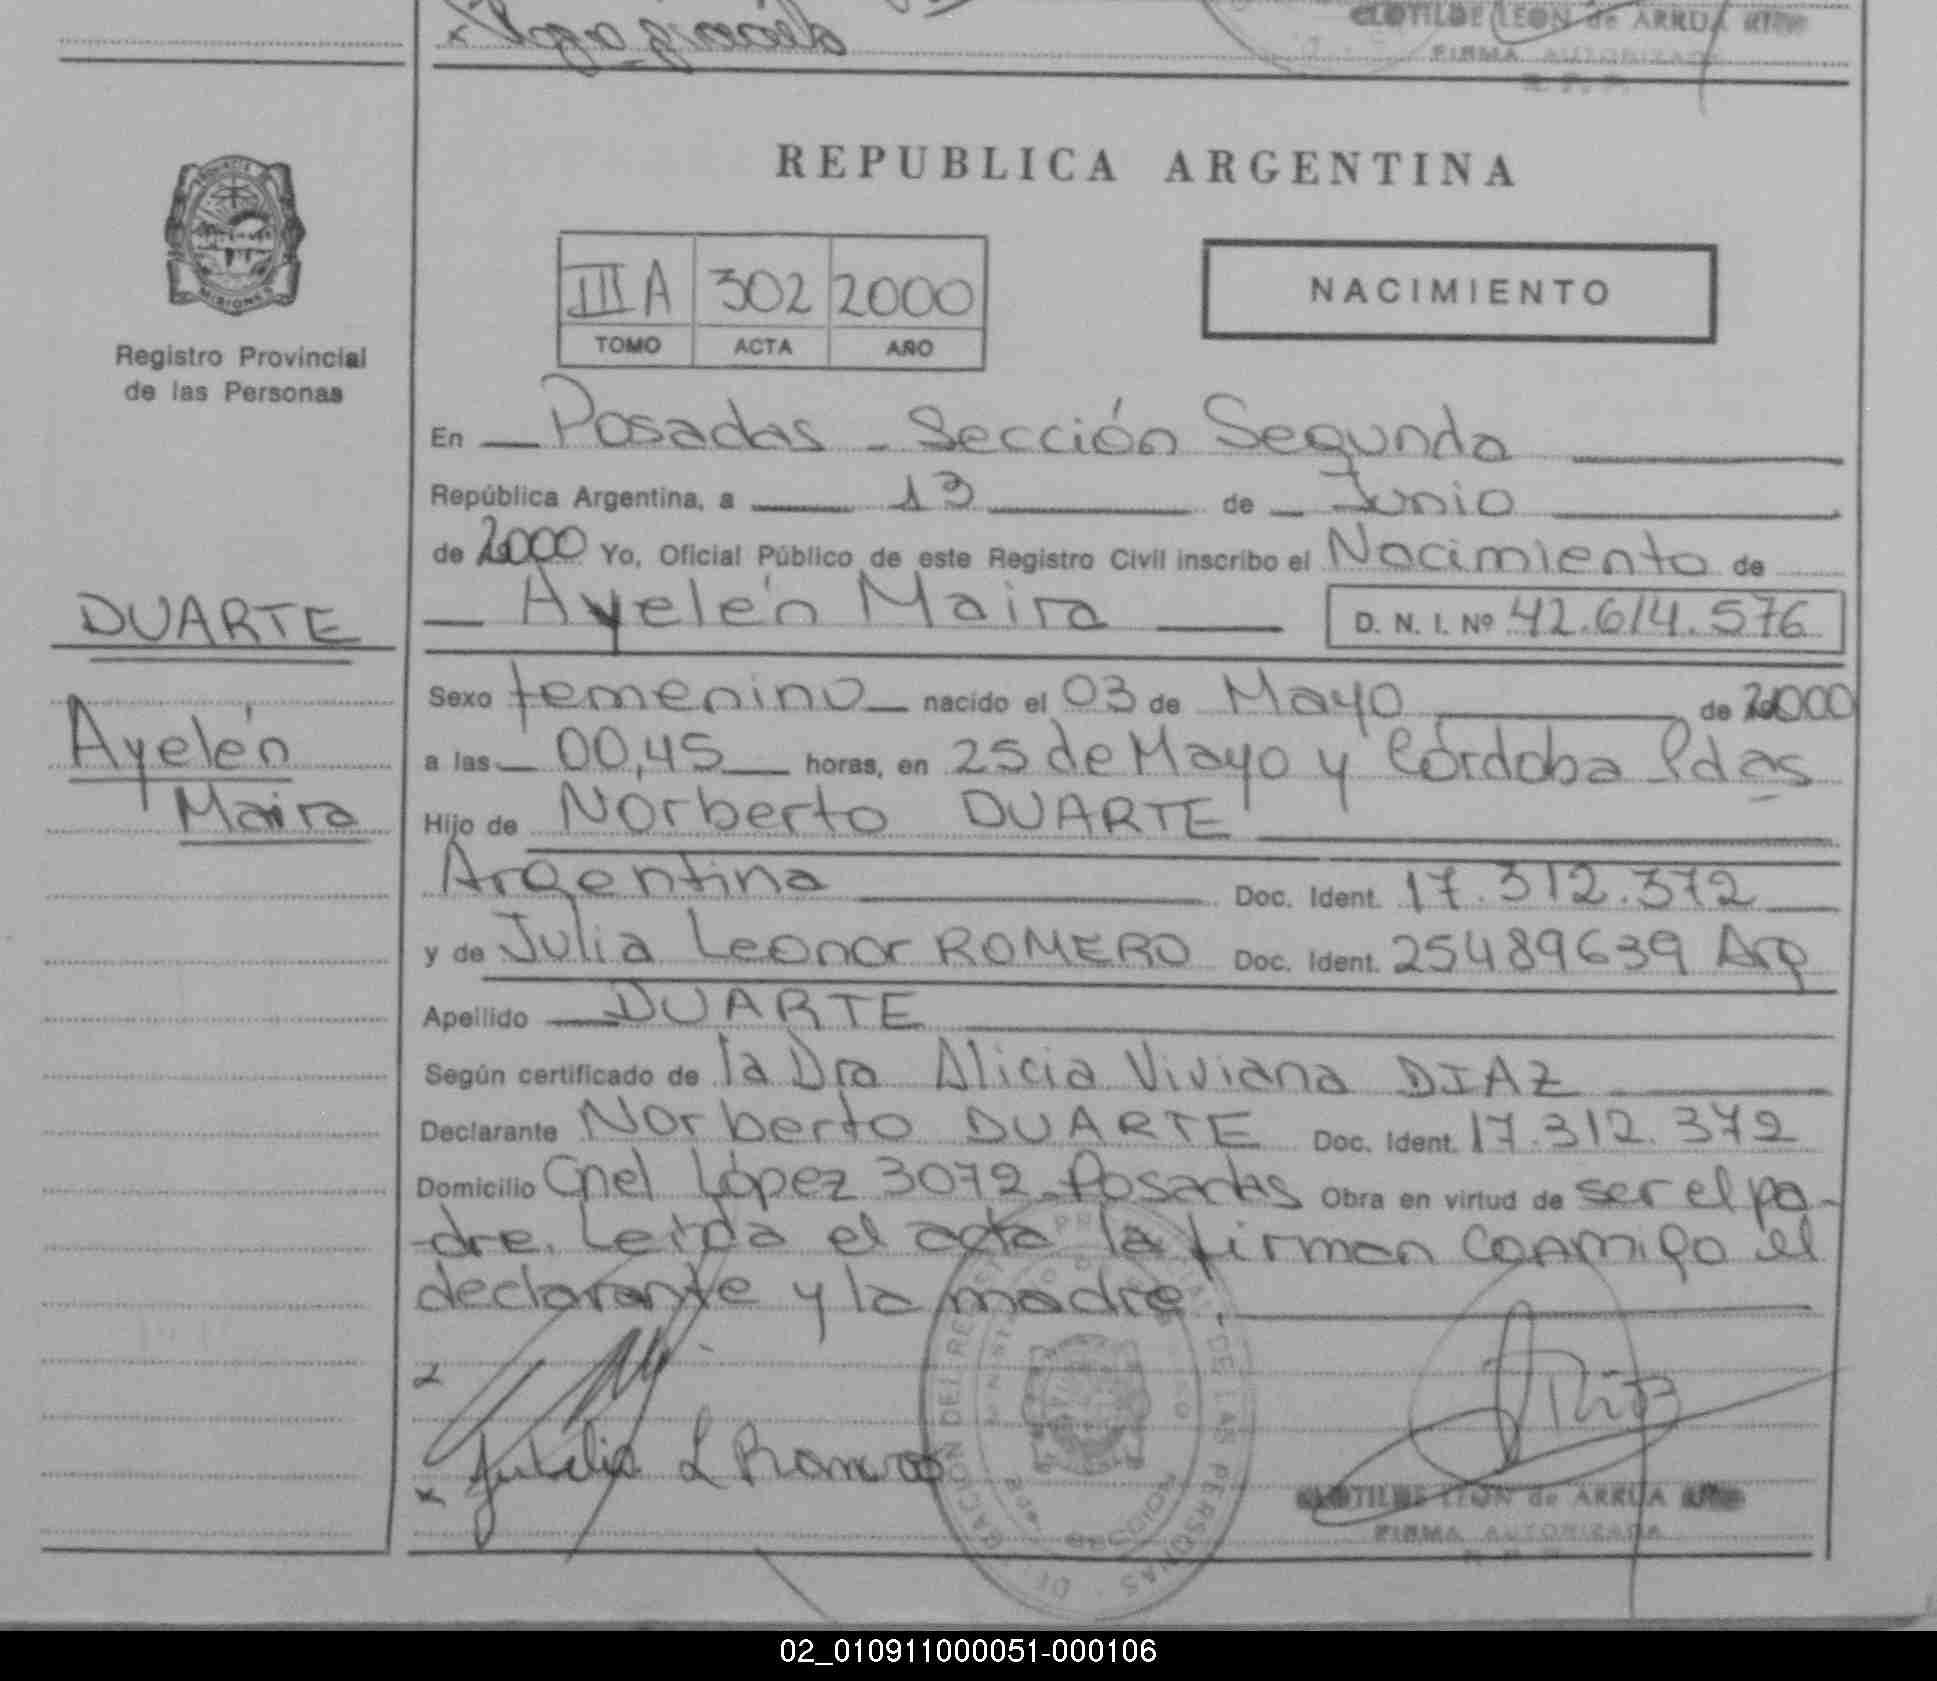 CLOTILDE LEON de ARRUA
FIRMA AUTORIZADA
R. P. P.
MISIONES
Registro Provincial
de las Personas
DUARTE
Ayelén
Maira
REPUBLICA ARGENTINA
III A 302 2000
TOMO ACTA AÑO
NACIMIENTO
En Posadas - Sección Segunda
República Argentina, a 13 de Junio
de 2000 Yo, Oficial Público de este Registro Civil inscribo el Nacimiento de
Ayelén Maira D. N. I. Nº 42.614.576
Sexo femenino nacido el 03 de Mayo de 2000
a las 00,45 horas, en 25 de Mayo y Córdoba Pdas
Hijo de Norberto DUARTE
Argentina Doc. Ident. 17.312.372
y de Julia Leonor ROMERO Doc. Ident. 25489639 Arg
Apellido DUARTE
Según certificado de la Dra Alicia Viviana DIAZ
Declarante Norberto DUARTE Doc. Ident. 17.312.372
Domicilio Cnel López 3072 Posadas Obra en virtud de ser el pa-
dre. Leida el acta la firman conmigo el
declarante y la madre.
L Romero
DEL REGISTRO PROVINCIAL DE LAS PERSONAS
CLOTILDE LEON de ARRUA
FIRMA AUTORIZADA
02_010911000051-000106